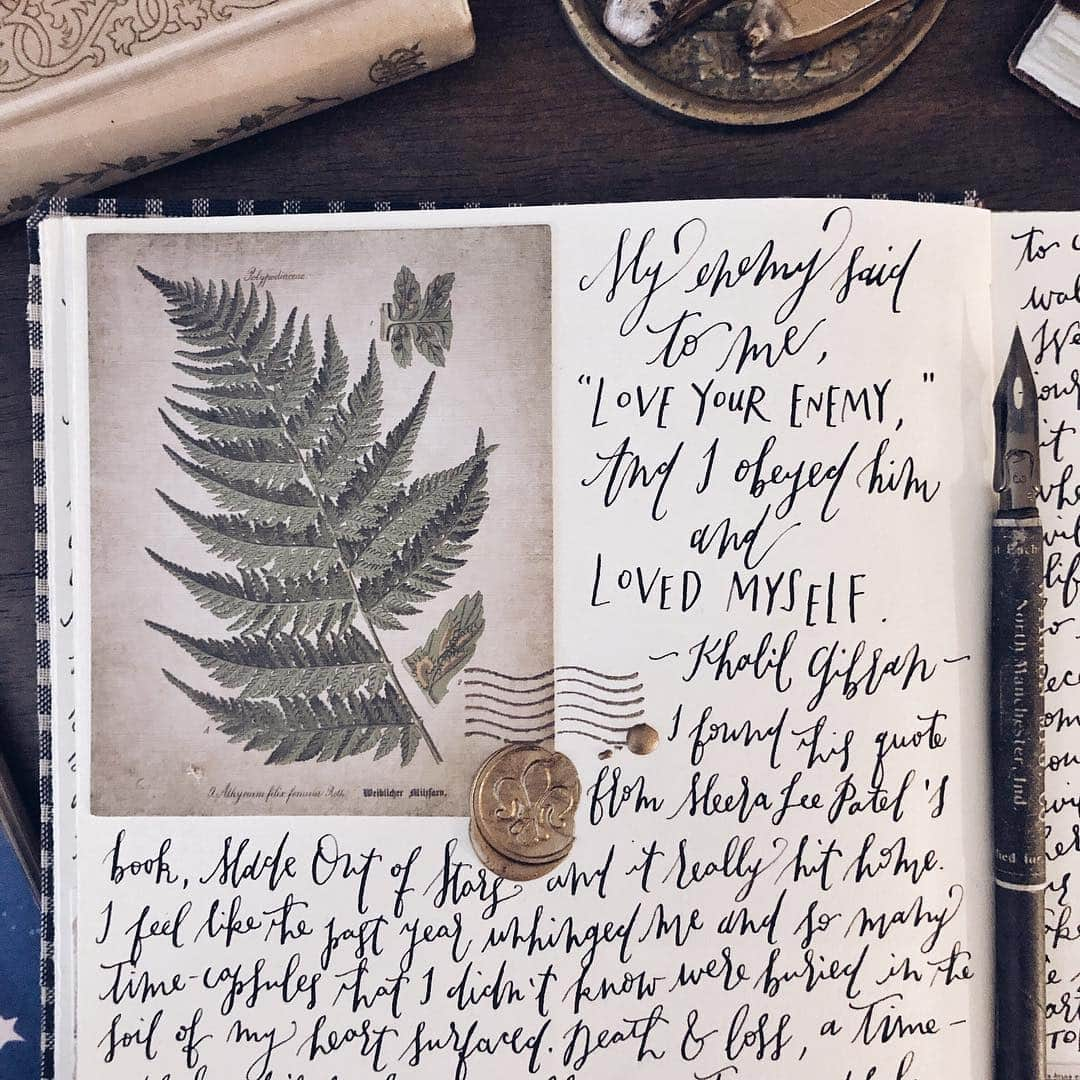 Polypodiaceae.
My enemy said
to me,
"LOVE YOUR ENEMY,"
And I obeyed him
and
LOVED MYSELF.
- Khalil Gibran -
I found this quote
from Meera Lee Patel's
book, Made Out of Stars and it really hit home.
I feel like the past year unhinged me and so many
time-capsules that I didn't know were buried in the
soil of my heart surfaced. Death & loss, a time-
Athyrium filix femina Roth. Weiblicher Milzfarn.
North Manchester Ind
to
We
it